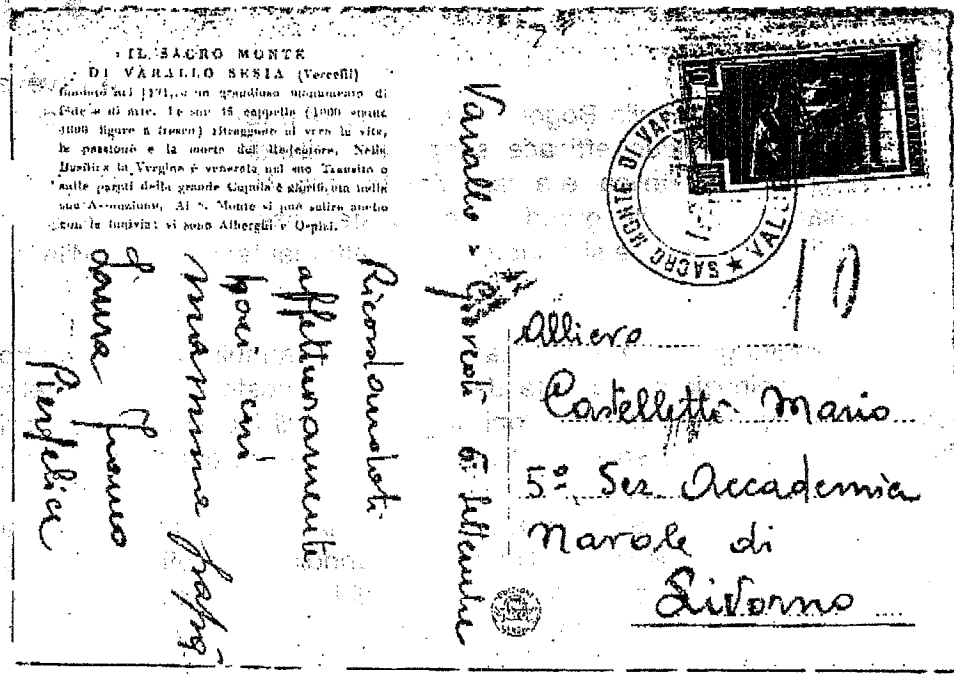 IL SACRO MONTE
DI VARALLO SESIA (Vercelli)
fondato nel è un grandioso monumento di
fede e di arte. Le sue cappelle (1000 statue
4000 figure a fresco) ritraggono al vero la vita,
la passione e la morte del Redentore. Nella
Basilica la Vergine è venerata nel suo Transito e
sulle pareti della grande Cupola è glorificata nella
sua Assunzione. Al S. Monte si può salire anche
con la funivia: vi sono Alberghi e Ospizi.
Varallo - Giovedì 6 Settembre
Ricordandoti
affettuosamente
baci cari
mamma papà
Laura Franco
Pierfelice
SACRO MONTE DI VARALLO
10
Allievo
Castelletti Mario
5ª Sez Accademia
Navale di
Livorno